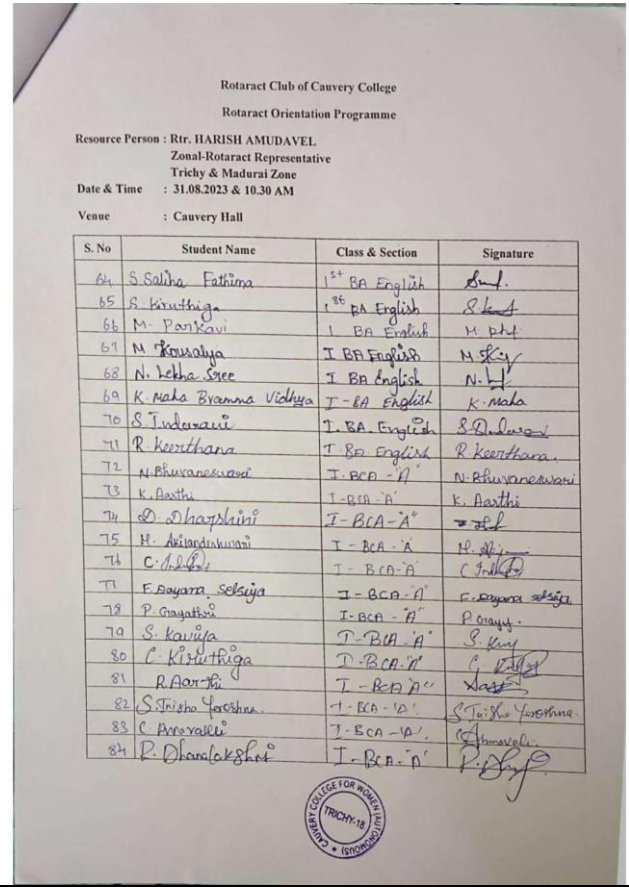 Rotaract Club of Cauvery College
Rotaract Orientation Programme
Resource Person : Rtr. HARISH AMUDAVEL
Zonal-Rotaract Representative
Trichy & Madurai Zone
Date & Time : 31.08.2023 & 10.30 AM
Venue : Cauvery Hall
S. No Student Name Class & Section Signature
64 S. Saliha Fathima 1st BA English
65 S. Kiruthiga BA English
66 M. Parkavi I BA English
67 M. Kousalya I BA English
68 N. Lekha Sree I BA English
69 K. Maha Bramma Vidhya I - BA English K. Maha
70 S. Indurani I. BA. English
71 R. Keerthana I BA English R. Keerthana.
72 N. Bhuvaneswari I. BCA - 'A' N. Bhuvaneswari
73 K. Aarthi I - BCA - 'A' K. Aarthi
74 D. Dharshini I - BCA - "A"
75 M. Akilandeshwari I - BCA - 'A'
76 C. I - BCA - 'A' C
77 F. Dayana selsiya I - BCA - 'A' F. Dayana selsiya
78 P. Gayathri I - BCA - "A"
79 S. Kaviya I - BCA - 'A' S.
80 C. Kiruthiga I - BCA - 'A' C.
81 R. Aarthi I - BCA 'A'
82 S. Trisha Yeroshna. I - BCA - 'A' S. Trisha Yeroshna.
83 C. I - BCA - 'A'
84 R. Dhanalakshmi I - BCA - 'A'
CAUVERY COLLEGE FOR WOMEN (AUTONOMOUS)
TRICHY-18